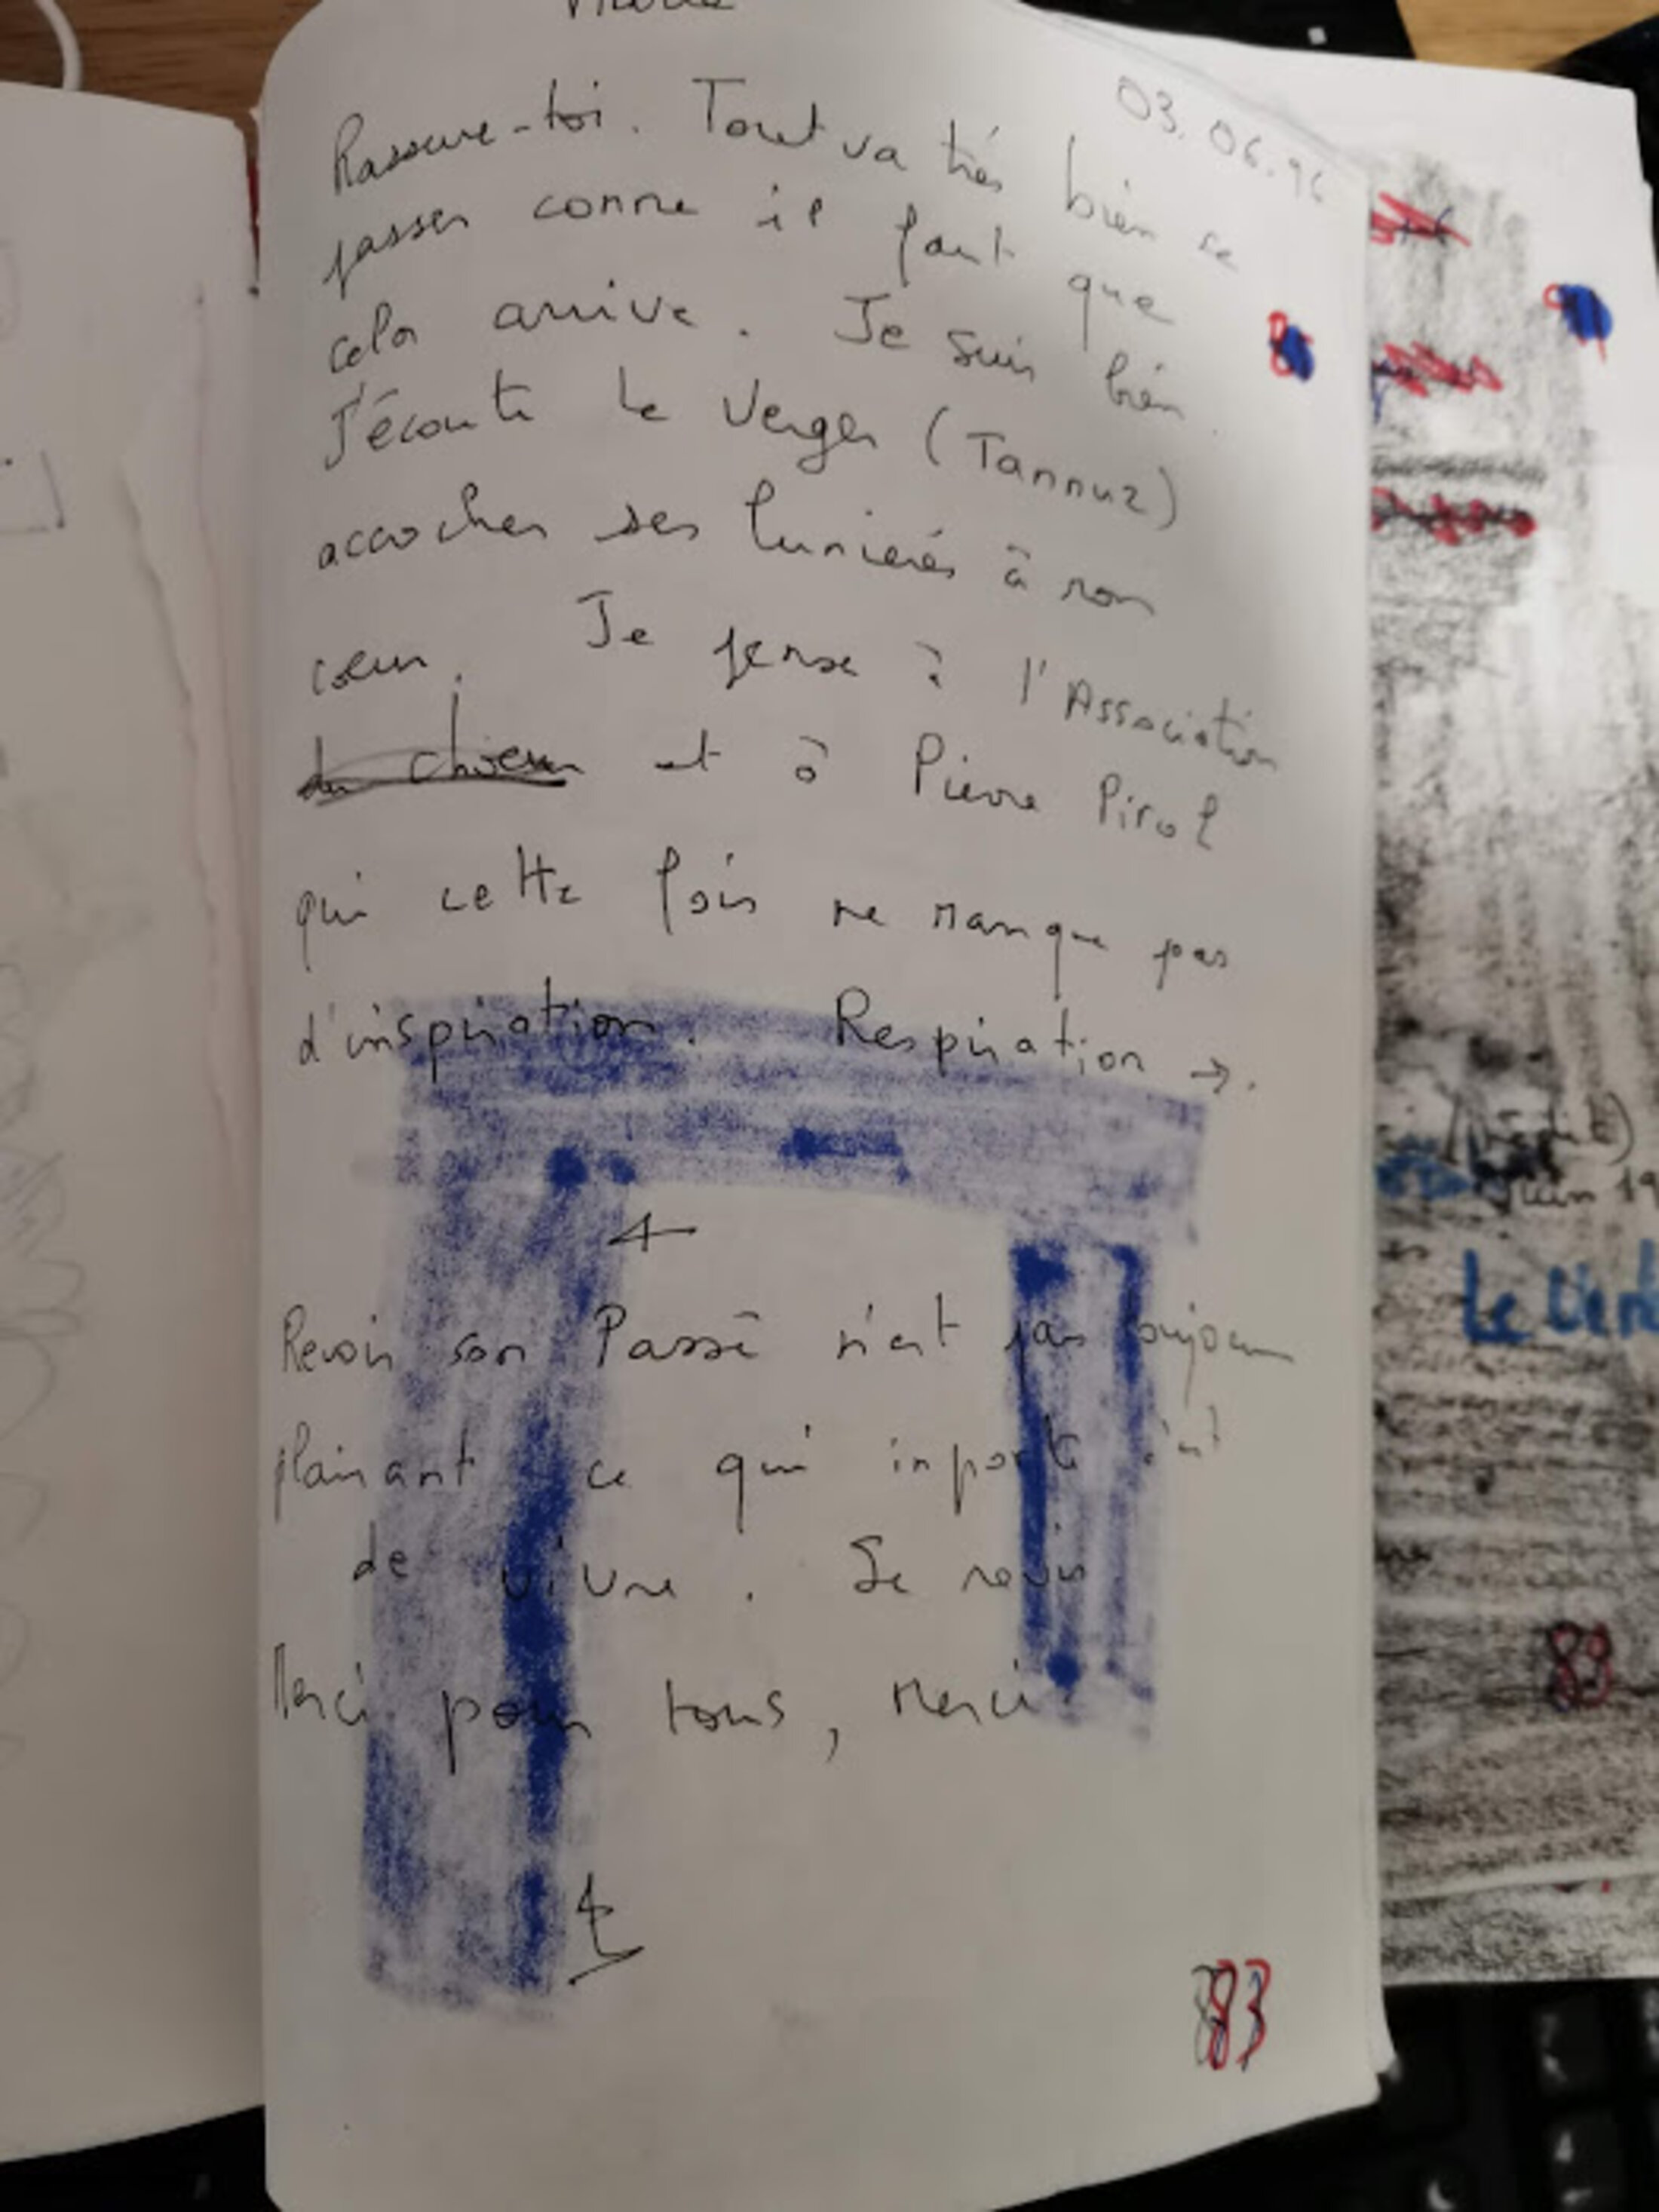 03.06.96
Rassure-toi. Tout va très bien se
passer comme il faut que
cela arrive. Je suis bien.
J'écoute le Verger (Tammuz)
accrocher ses lumières à son
cœur. Je pense à l'Association
et à Pierre Pirol
qui cette fois ne manque pas
d'inspiration. Respiration →.
←
Revoir son Passé n'est pas toujours
plaisant ce qui importe c'est
de vivre. Se revoir
Merci pour tous, merci
83
juin 19
Le
83